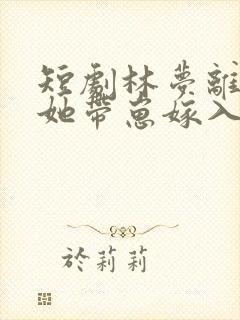 短劇林夢離
她帶崽嫁入
於莉莉